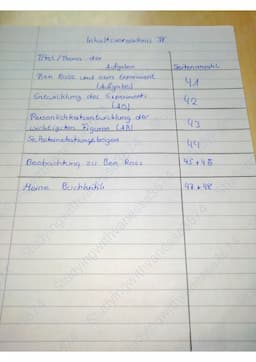 Inhaltsverzeichnis IV
Titel / Thema der
Aufgaben
Seitenanzahl
Ben Ross und sein Experiment
(Aufgaben)
41
Entwicklung des Experiments
(AB)
42
Persönlichkeitsentwicklung der
wichtigsten Figuren (AB)
43
Selbsteinschätzungsbogen
44
Beobachtung zu Ben Ross
45 + 46
Meine Buchkritik
47 + 48